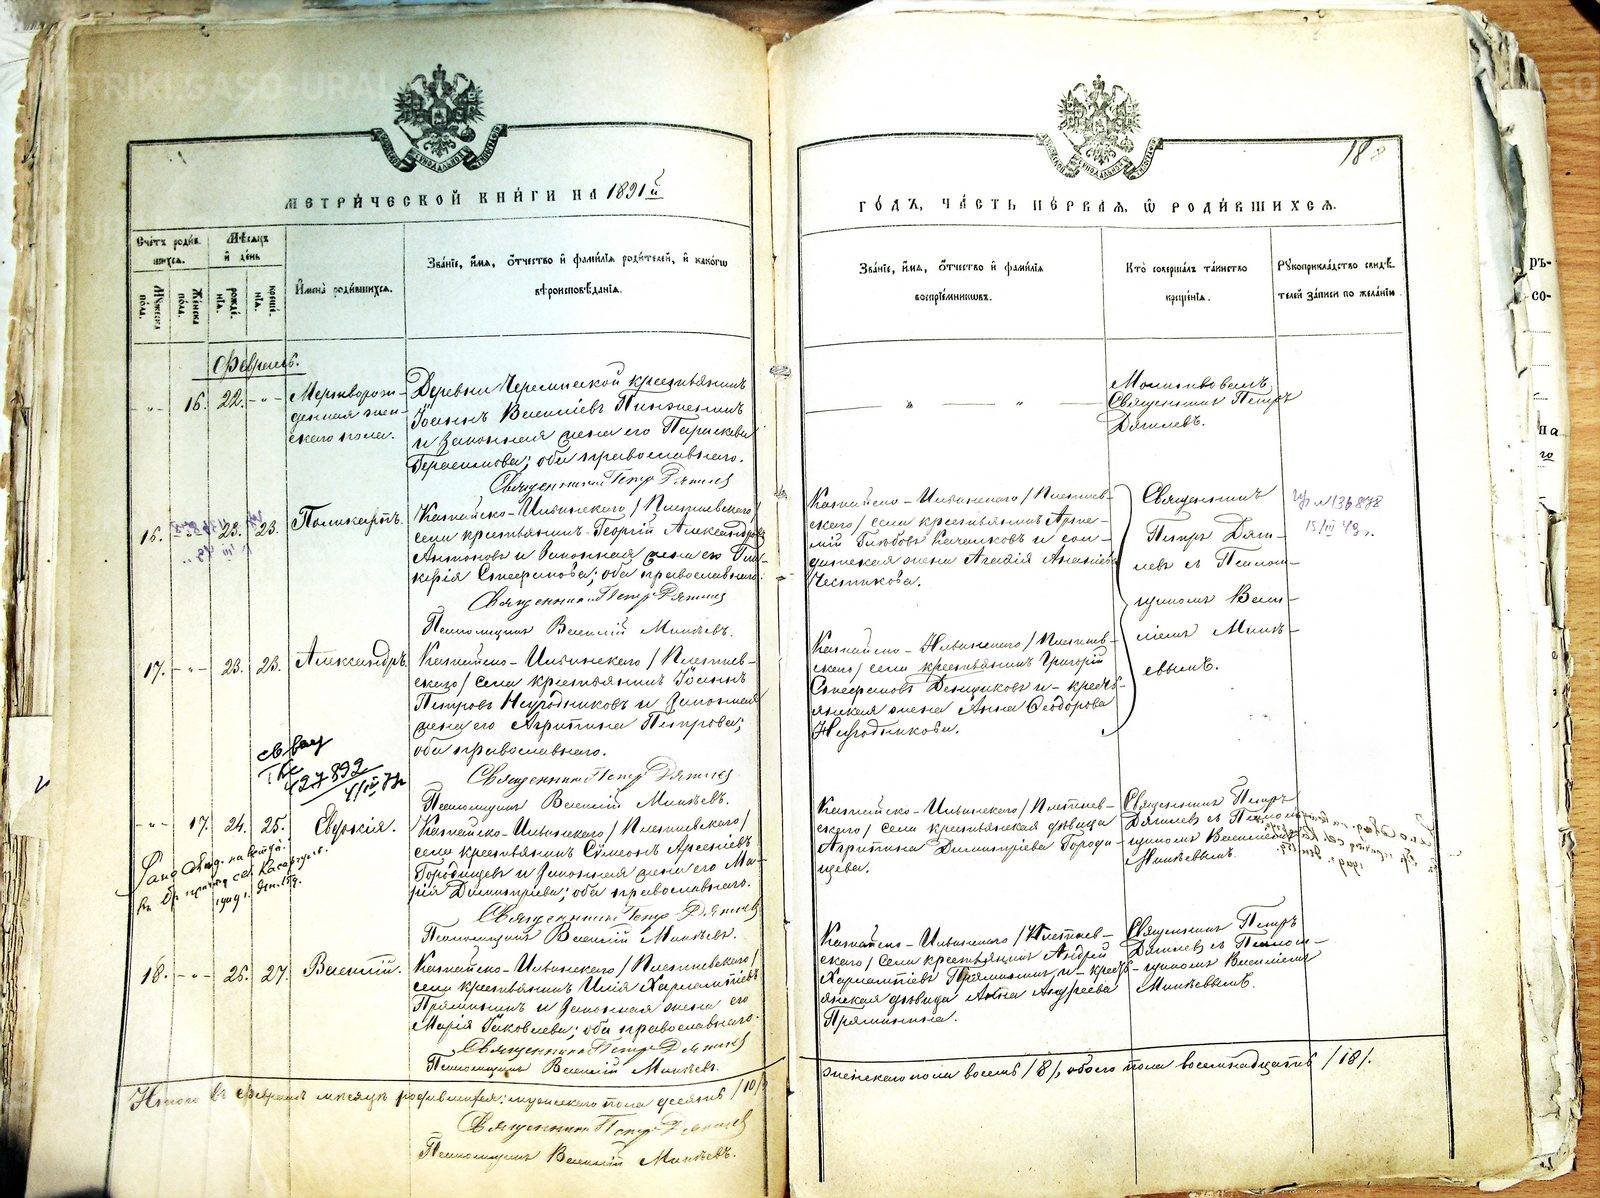 METRIKI.GASO-URAL
МЕТРИ́ЧЕСКОЙ КНИ́ГИ НА 1891й
Сче́тъ роди́в
шихся.
Мѣ́сяцъ
и҆ де́нь
Му́жеска
по́ла.
Же́нска
по́ла.
рожде́
нїѧ.
креще́
нїѧ.
И҆мена̀ роди́вшихся.
Зва́нїе, и҆́мя, ѻ҆́тчество и҆ фами́лїя роди́телей, и҆ како́гѡ
вѣроисповѣ́данїя.
Февраль.
-"- 16. 22. -"- Мертворож-
денная жен-
скаго пола.
Деревни Черемисской крестьянинъ
Іоаннъ Василіевъ Пинженинъ
и законная жена его Параскева
Герасимова; оба православнаго.
Священникъ Петръ Дягилев
16. -"- 23. 23. Поликарпъ.
Катайско-Ильинскаго /Плетневскаго/
села крестьянинъ Георгій Александровъ
Антоновъ и законная жена его Гли-
керія Стефанова; оба православнаго.
Священникъ Петръ Дягилев
Псаломщикъ Василій Микѣевъ.
17. -"- 23. 23. Александръ.
Катайско-Ильинскаго /Плетнев-
скаго/ села крестьянинъ Іоаннъ
Петровъ Негодниковъ и законная
жена его Агрипина Петрова;
оба православнаго.
Священникъ Петръ Дягилев
Псаломщикъ Василій Микѣевъ.
427892
-"- 17. 24. 25. Евдокія.
Катайско-Ильинскаго /Плетневскаго/
села крестьянинъ Сѵмеонъ Арсеніевъ
Городищевъ и законная жена его Ма-
рія Димитріева; оба православнаго.
Священникъ Петръ Дягилев
Псаломщикъ Василій Микѣевъ.
1909 г.
18. -"- 26. 27. Василій.
Катайско-Ильинскаго /Плетневскаго/
села крестьянинъ Илія Харлампіевъ
Пряминынъ и законная жена его
Марія Іаковлева; оба православнаго.
Священникъ Петръ Дягилев
Псаломщикъ Василій Микѣевъ.
Итого въ февралѣ мѣсяцѣ родившихся: мужескаго пола десять /10/,
Священникъ Петръ Дягилев
Псаломщикъ Василій Микѣевъ.
18
ГО́ДЪ, ЧА́СТЬ ПЕ́РВАЯ, Ѡ҆ РОДИ́ВШИХСЯ.
Зва́нїе, и҆́мя, ѻ҆́тчество и҆ фами́лїя
воспрїе́мниковъ.
Кто̀ соверша́лъ та́инство
креще́нїя.
Рукоприкла́дство свидѣ́
телей за́писи по жела́нїю
Молитвовалъ
Священникъ Петръ
Дягилевъ.
Катайско-Ильинскаго /Плетнев-
скаго/ села крестьянинъ Арте-
мій Глѣбовъ Качалковъ и сол-
датская жена Агафія Ананіева
Чистякова.
Священникъ
Петръ Дяги-
левъ съ Псалом-
щикомъ Васи-
ліемъ Микѣ-
евымъ.
№ 136872
15/III 49 г.
Катайско-Ильинскаго /Плетнев-
скаго/ села крестьянинъ Григорій
Стефановъ Денщиковъ и кресть-
янская жена Анна Ѳеодорова
Негодникова.
Катайско-Ильинскаго /Плетнев-
скаго/ села крестьянская дѣвица
Агрипина Димитріева Городи-
щева.
Священникъ Петръ
Дягилевъ съ Псалом-
щикомъ Василіемъ
Микѣевымъ.
Катайско-Ильинскаго /Плетнев-
скаго/ села крестьянинъ Андрей
Харлампіевъ Пряминынъ и кресть-
янская дѣвица Анна Андреева
Пряминина.
Священникъ Петръ
Дягилевъ съ Псалом-
щикомъ Василіемъ
Микѣевымъ.
женскаго пола восемь /8/, обоего пола восемнадцать /18/.